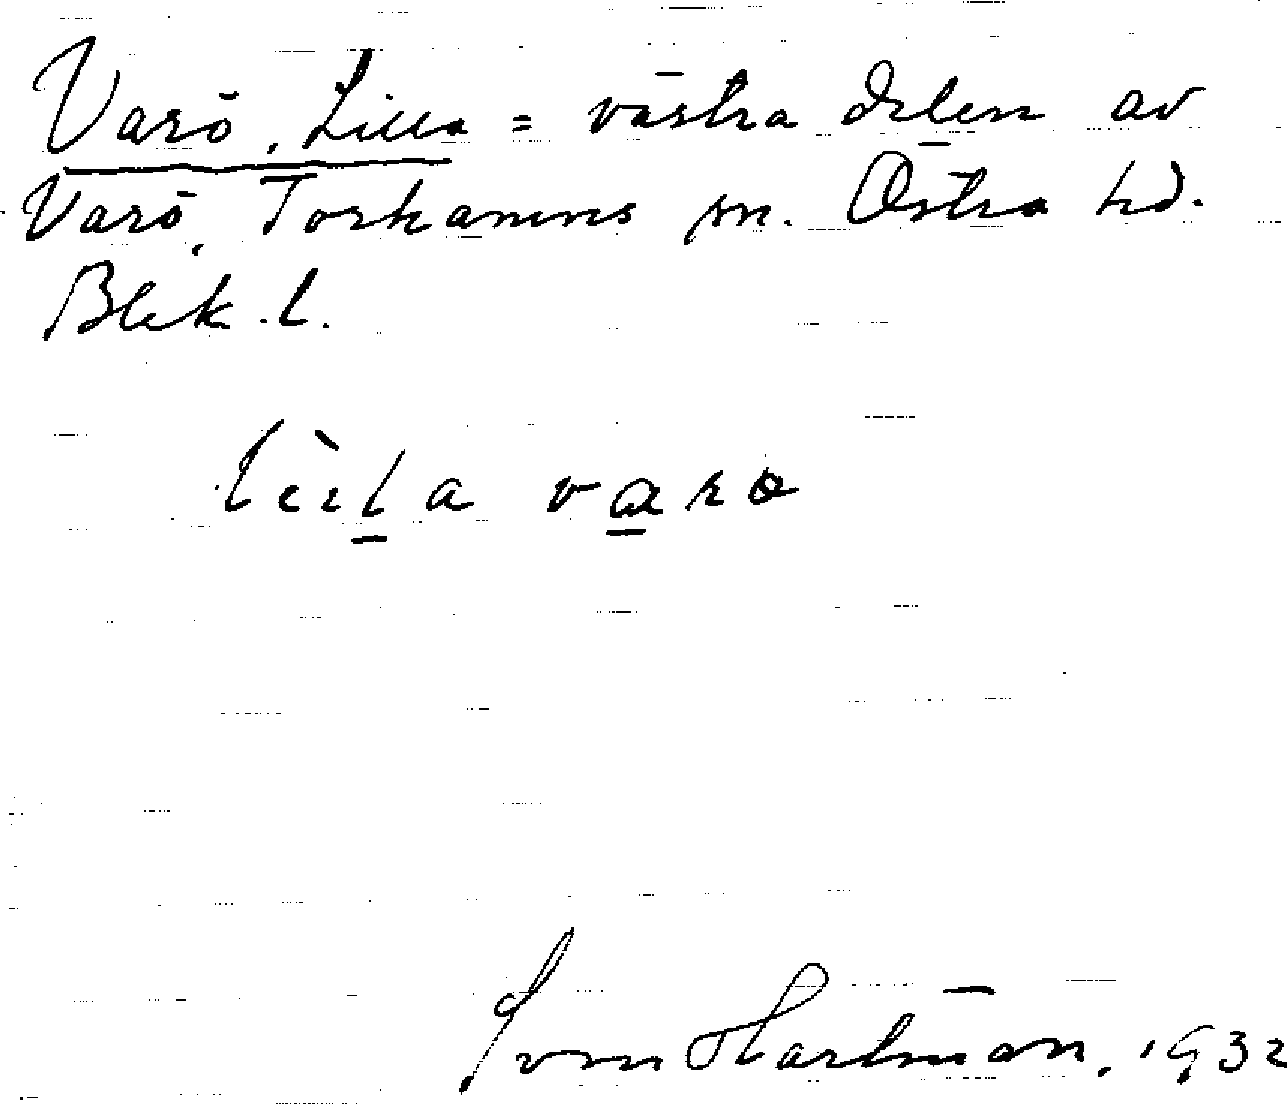 Varö, Lilla = västra delen av
Varö, Torhamns sn. Östra hd.
Blek. l.
varö
Hartman, 1932